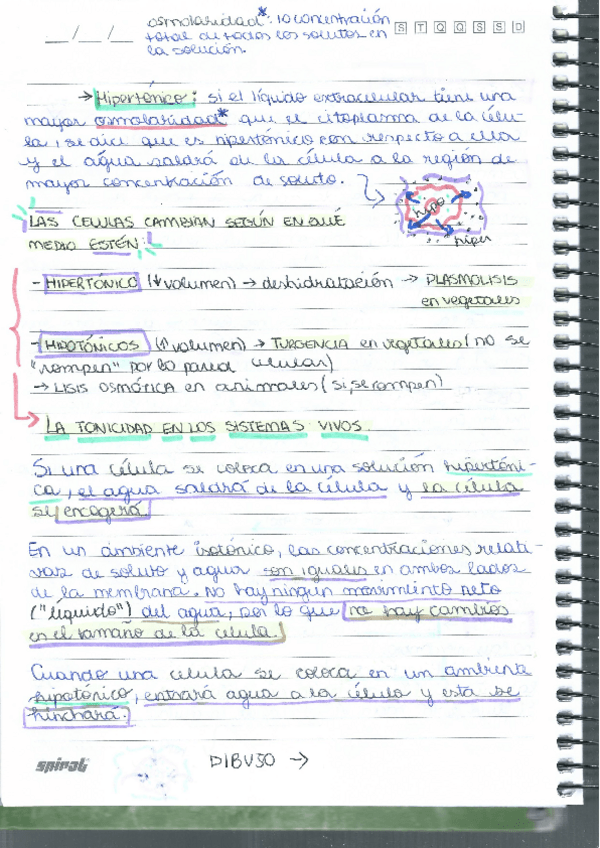 __/__/__
osmolaridad*: la concentración
total de todos los solutos en
la solución.
S T Q Q S S D
→ Hipertónico: si el líquido extracelular tiene una
mayor osmolaridad* que el citoplasma de la célu-
la, se dice que es hipertónico con respecto a ella
y el agua saldrá de la célula a la región de
mayor concentración de soluto.
hipo
hiper
LAS CELULAS CAMBIAN SEGÚN EN QUÉ
MEDIO ESTÉN:
- HIPERTÓNICO (↓volumen) → deshidratación → PLASMOLISIS
en vegetales
- HIPOTÓNICOS (↑volumen) → TURGENCIA en vegetales (no se
"rompen" por la pared celular)
→ LISIS OSMÓTICA en animales (si, se rompen)
LA TONICIDAD EN LOS SISTEMAS VIVOS
Si una célula se coloca en una solución hipertóni-
ca, el agua saldrá de la célula y la célula
se encogerá.
En un ambiente isotónico, las concentraciones relati-
vas de soluto y agua son iguales en ambos lados
de la membrana. No hay ningún movimiento neto
("líquido") del agua, por lo que no hay cambios
en el tamaño de la célula.
Cuando una celula se coloca en un ambiente
hipotónico, entrará agua a la célula y esta se
hinchará.
spiral
DIBUJO →